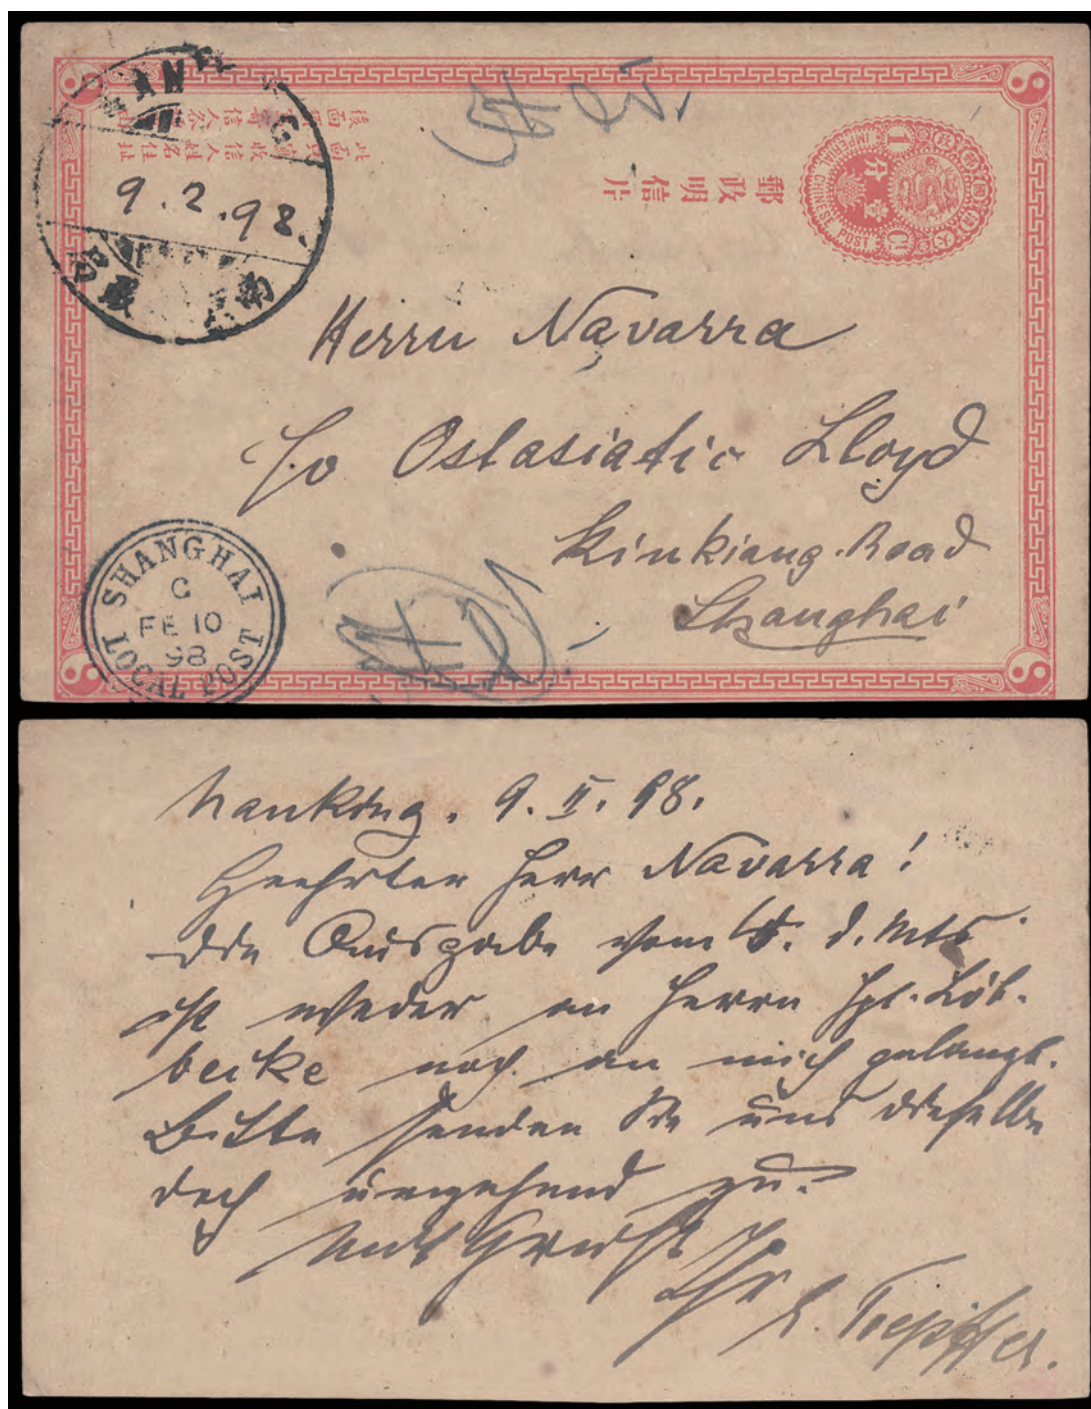 NANKING
9.2.98.
此面只寫收信人姓名住址
郵政明信片
大清郵政國
壹分
1
Ct
IMPERIAL CHINESE POST
Herrn Navarra
c/o Ostasiatic Lloyd
Kinkiang-Road
Shanghai
SHANGHAI LOCAL POST
C
FE 10
98
Nanking. 9. II. 98.
Geehrter Herr Navarra!
Die Ausgabe vom d. Mts
ist weder an Herrn Hpt. Löb-
becke noch an mich gelangt.
Bitte senden Sie uns dieselbe
doch umgehend zu.
Mit Gruß
Ihr
Toepffer.